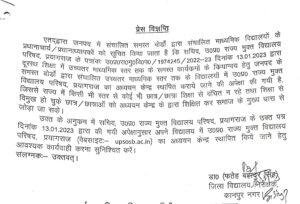 प्रेस विज्ञप्ति
एतद्द्वारा जनपद में संचालित समस्त बोर्डों द्वारा संचालित माध्यमिक विद्यालयों के
प्रधानाचार्य / प्रधानाध्यापकों को सूचित किया जाता है कि सचिव, उ0प्र0 राज्य मुक्त विद्यालय
परिषद, प्रयागराज के पत्रांक / 1974245 / 2022-23 दिनांक 13.01.2023 द्वारा
दूरस्थ शिक्षा में उच्चतर माध्यमिक स्तर तक के समस्त कार्यक्रमों के क्रियान्वयन हेतु जनपद के
समस्त बोर्डों द्वारा संचालित उच्चतर माध्यमिक स्तर तक के विद्यालयों में उ0प्र0 राज्य मुक्त
विद्यालय परिषद, प्रयागराज का अध्ययन केन्द्र स्थापित कराये जाने की अपेक्षा की गयी है,
जिससे राज्य में किसी भी स्तर से कोई भी छात्र / छात्रा शिक्षा से वंचित न रहे तथा शिक्षा से
विमुख हो चुके छात्र / छात्राओं को अध्ययन केन्द्र के द्वारा शिक्षित कर समाज के मुख्य धारा से
जोड़ा जा सके।
उक्त के अनुक्रम में सचिव, उ0प्र0 राज्य मुक्त विद्यालय परिषद, प्रयागराज के उक्त पत्र
दिनांक 13.01.2023 द्वारा की गयी अपेक्षानुसार अपने विद्यालय में उ0प्र0 राज्य मुक्त विद्यालय
परिषद, प्रयागराज (वेबसाइट:- upsosb.ac.in) का अध्ययन केन्द्र स्थापित किये जाने हेतु
आवश्यक कार्यवाही करना सुनिश्चित करें।
संलग्नक:- उक्तवत्।
डा0 (फतेह बहादुर सिंह)
जिला विद्यालय निरीक्षक,
कानपुर नगर